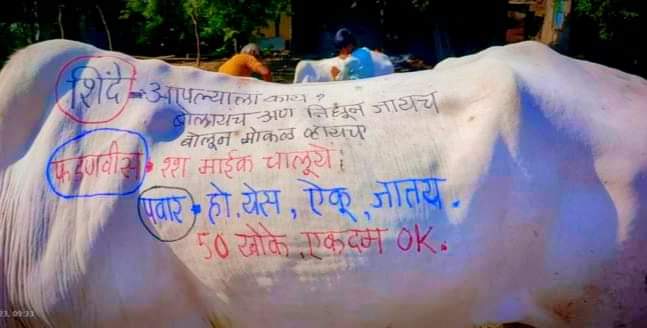 शिंदे - आपल्याला काय ?
बोलायचं अण निघून जायच
बोलून मोकळ व्हायचं
फडणवीस - श्श माईक चालूये
पवार - हो, येस, ऐकू, जातय.
50 खोके, एकदम OK.
23, 09:33